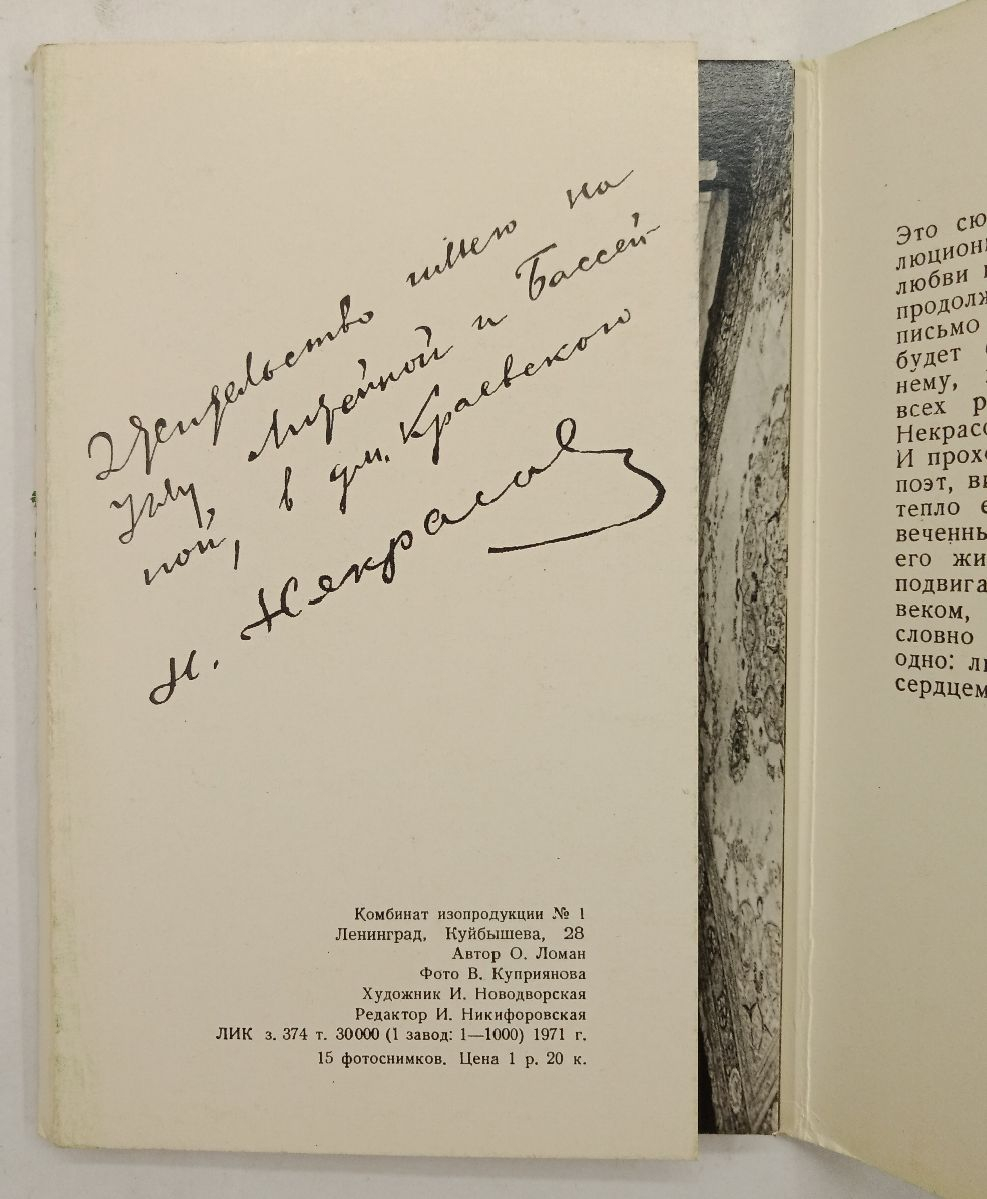 Жительство имею на
углу Литейной и Бассей
ной, в дм. Краевского
Н. Некрасов
Комбинат изопродукции № 1
Ленинград, Куйбышева, 28
Автор О. Ломан
Фото В. Куприянова
Художник И. Новодворская
Редактор И. Никифоровская
ЛИК з. 374 т. 30000 (1 завод: 1—1000) 1971 г.
15 фотоснимков. Цена 1 р. 20 к.
Это сю
люцион
любви
продолж
письмо
будет
нему,
всех р
Некрасо
И прохо
поэт, ви
тепло е
веченны
его жи
подвига
веком,
словно
одно: лю
сердцем